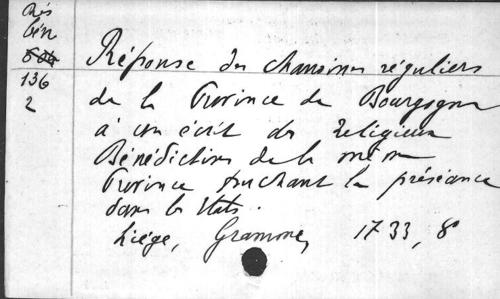 Rés
bén
136
2
Réponse des chanoines réguliers
de la Province de Bourgogne
à un écrit des religieux
Bénédictins de la même
Province touchant la préséance
dans les États.
Liége, Gramme, 1733, 8°